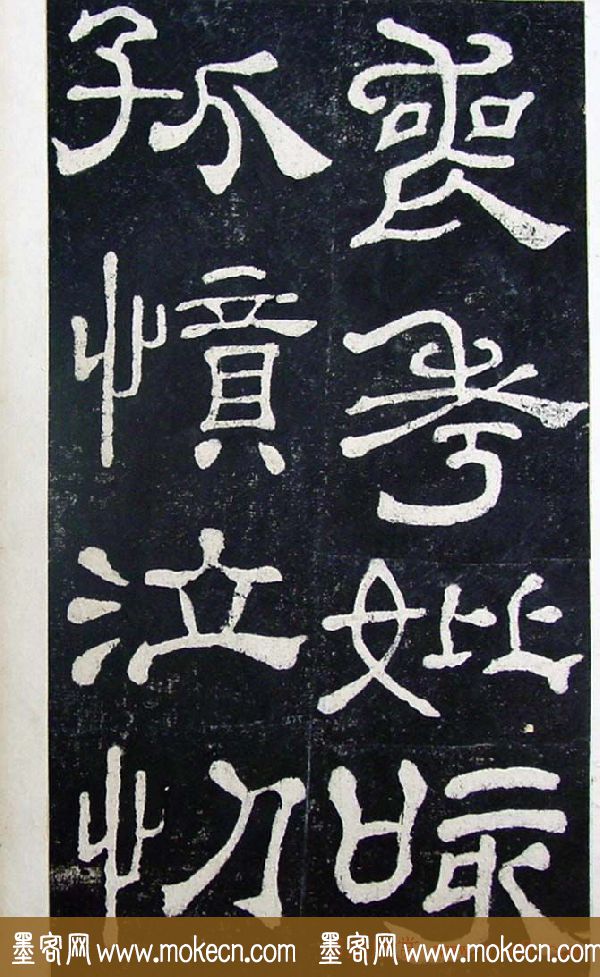 喪考妣咳
孤憤泣忉
墨客网 www.mokecn.com 墨客网 www.mokecn.com